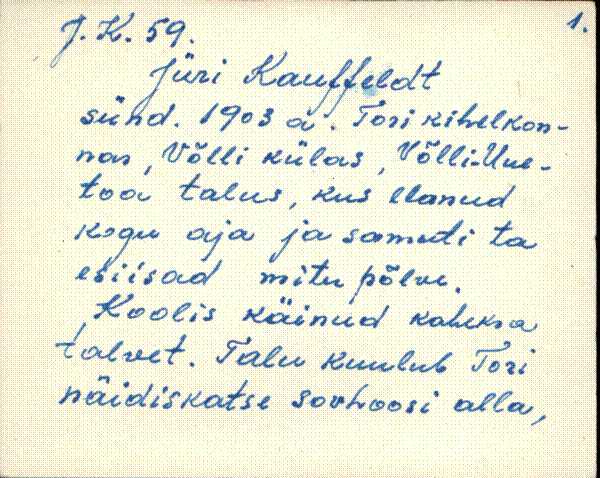 J. K. 59.
1.
Jüri Kauffeldt
sünd. 1903 a. Tori kihelkon-
nas, Võlli külas, Võlli-Uue-
toa talus, kus elanud
kogu aja ja samuti ta
esiisad mitu põlve.
Koolis käinud kaheksa
talvet. Talu kuulub Tori
näidiskatse sovhoosi alla,